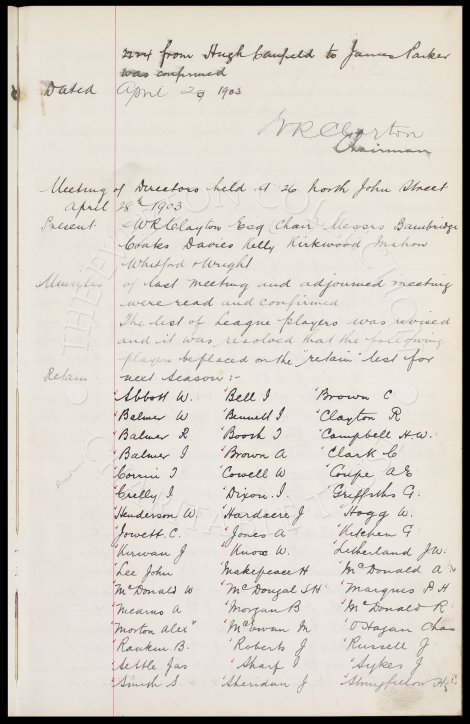 from Hugh Caufield to James Parker
was confirmed
Dated April 29 1903
WR Clayton
Chairman
Meeting of Directors held at 26 North John Street
April 28th 1903
Present WR Clayton Esq Chair Messrs Bainbridge
Coaks Davies Kelly Kirkwood Mahon
Whitford & Wright
Minutes of last meeting and adjourned meeting
were read and confirmed
The list of League players was revised
and it was resolved that the following
players be placed on the "retain" list for
Retain next season :-
Abbott W. Bell J Brown C
Balmer W Bennett J Clayton R
Balmer R Booth T Campbell H.W.
Balmer J Brown A Clark C
Corrin T Cowell W Coupe A E
Crelly J Dixon J. Griffiths G.
Henderson W. Hardacre J Hogg W.
Jowett C. Jones A Kitchen G
Kirwan J Knox W. Letherland J.W.
Lee John Makepeace H McDonald A
McDonald W McDougal J H Marquis P H
Mearns A Morgan B McDonald R
Morton Alex McEwan M O'Hagan Chas
Rankin B. Roberts J Russell J
Settle Jas Sharp J Sykes J
Smith S Sheridan J Stringfellow H